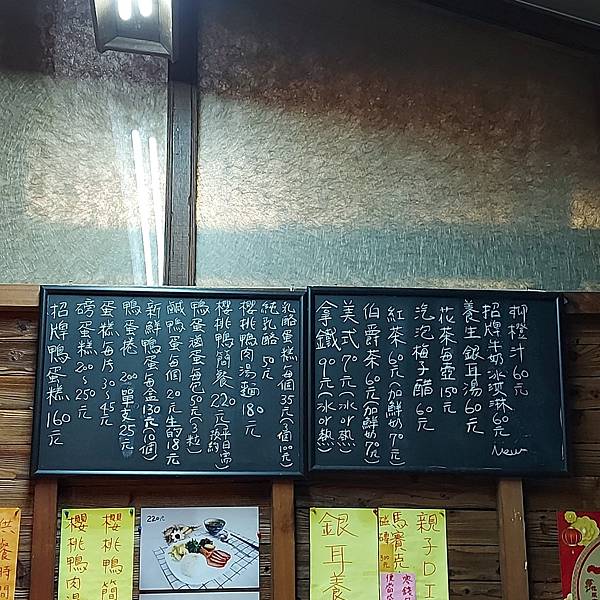 柳橙汁60元
招牌牛奶冰淇淋60元 New
養生銀耳湯60元
花茶每壺150元
泡泡梅子醋60元
紅茶60元(加鮮奶70元)
伯爵茶60元(加鮮奶70元)
美式70元(冰or熱)
拿鐵90元(冰or熱)
乳酪蛋糕每個35元(3個100元)
純乳酪50元
櫻桃鴨肉湯麵180元
櫻桃鴨簡餐220元(平日需預約)
鴨蛋滷蛋每包50元(5粒)
鹹鴨蛋每個20元生的18元
新鮮鴨蛋每盒130元(10個)
鴨蛋捲200單支25元
蛋糕每片30~45元
磅蛋糕200~250元
招牌鴨蛋糕160元
親子DIY
馬賽克
磁磚300元
銀耳養
220元
櫻桃鴨簡
櫻桃鴨肉湯
供餐時間